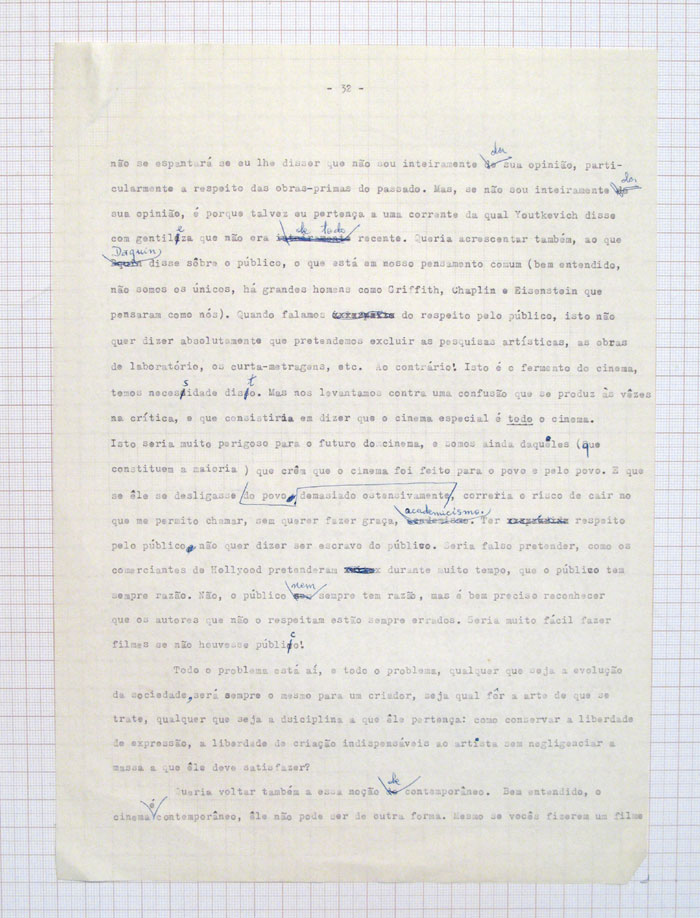 - 32 -
não se espantará se eu lhe disser que não sou inteiramente da sua opinião, parti-
cularmente a respeito das obras-primas do passado. Mas, se não sou inteiramente da
sua opinião, é porque talvez eu pertença a uma corrente da qual Youtkevich disse
com gentileza que não era de todo recente. Queria acrescentar também, ao que
Daquin disse sôbre o público, o que está em nosso pensamento comum (bem entendido,
não somos os únicos, há grandes homens como Griffith, Chaplin e Eisenstein que
pensaram como nós). Quando falamos do respeito pelo público, isto não
quer dizer absolutamente que pretendemos excluir as pesquisas artísticas, as obras
de laboratório, os curta-metragens, etc. Ao contrário! Isto é o fermento do cinema,
temos necessidade disto. Mas nos levantamos contra uma confusão que se produz às vêzes
na crítica, e que consistiria em dizer que o cinema especial é todo o cinema.
Isto seria muito perigoso para o futuro do cinema, e somos ainda daquêles (que
constituem a maioria ) que crêm que o cinema foi feito para o povo e pelo povo. E que
se êle se desligasse do povo, demasiado ostensivamente, correria o risco de cair no
que me permito chamar, sem querer fazer graça, academicismo. Ter respeito
pelo público, não quer dizer ser escravo do público. Seria falso pretender, como os
comerciantes de Hollyood pretenderam durante muito tempo, que o público tem
sempre razão. Não, o público nem sempre tem razão, mas é bem preciso reconhecer
que os autores que não o respeitam estão sempre errados. Seria muito fácil fazer
filmes se não houvesse público!
Todo o problema está aí, e todo o problema, qualquer que seja a evolução
da sociedade, será sempre o mesmo para um criador, seja qual fôr a arte de que se
trate, qualquer que seja a dsiciplina a que êle pertença: como conservar a liberdade
de expressão, a liberdade de criação indispensáveis ao artista sem negligenciar a
massa a que êle deve satisfazer?
Queria voltar também a essa noção de contemporâneo. Bem entendido, o
cinema é contemporâneo, êle não pode ser de outra forma. Mesmo se vocês fizerem um filme